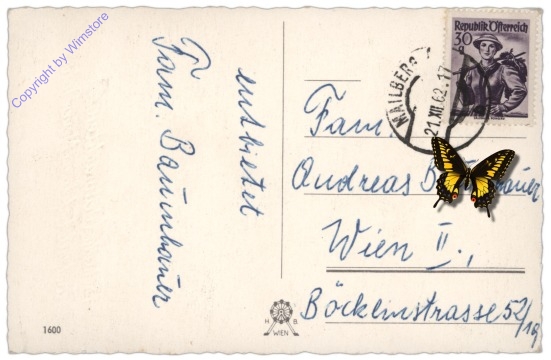 Copyright by Wimstore
entbietet
Fam. Baumhauer
Republik Österreich
30
MAILBERG
21.XII.62.17
Fam.
Andreas
Wien II.,
Böcklinstrasse 52/
19
1600
H B
WIEN